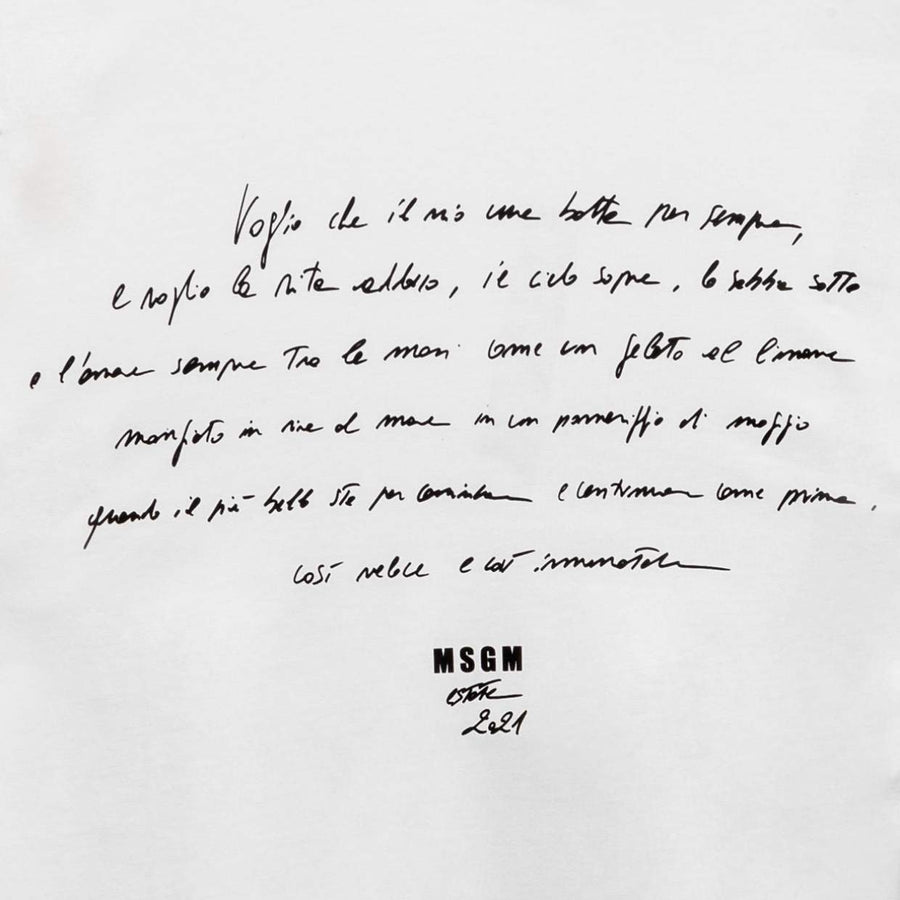 Voglio che il mio cuore batta per sempre,
e voglio la vita addosso, il cielo sopra, la sabbia sotto
e l'amore sempre tra le mani come un gelato al limone
mangiato in riva al mare in un pomeriggio di maggio
quando il più bello sta per cominciare e continuare come prima,
così veloce e così immortale
MSGM
estate
2021